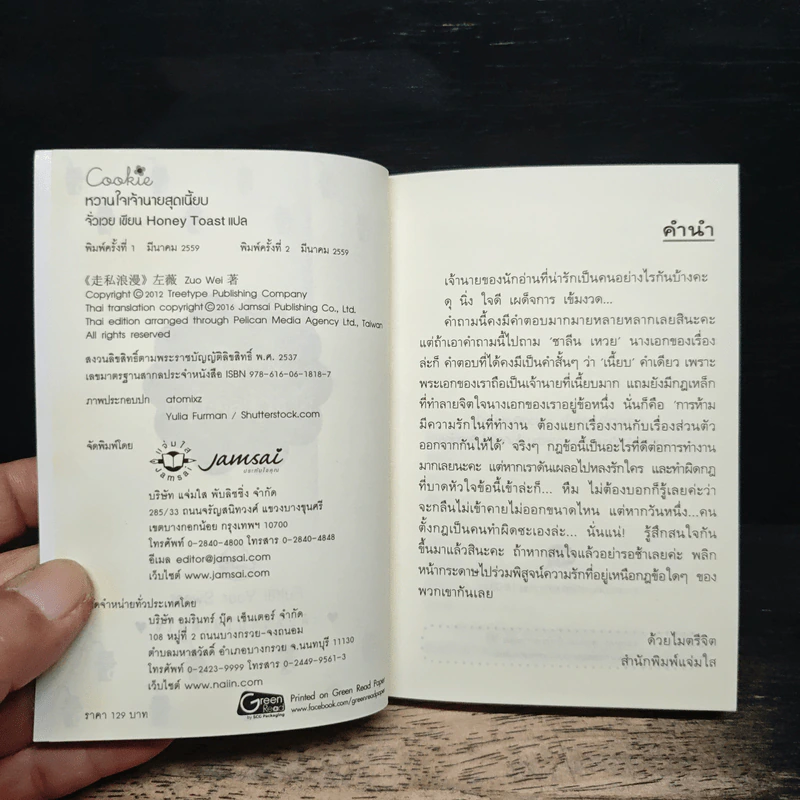 Cookie
หวานใจเจ้านายสุดเนี้ยบ
จั่วเวย เขียน Honey Toast แปล
พิมพ์ครั้งที่ 1 มีนาคม 2559 พิมพ์ครั้งที่ 2 มีนาคม 2559
《走私浪漫》左薇 Zuo Wei 著
Copyright © 2012 Treetype Publishing Company
Thai translation copyright © 2016 Jamsai Publishing Co., Ltd.
Thai edition arranged through Pelican Media Agency Ltd., Taiwan
All rights reserved
สงวนลิขสิทธิ์ตามพระราชบัญญัติลิขสิทธิ์ พ.ศ. 2537
เลขมาตรฐานสากลประจำหนังสือ ISBN 978-616-06-1818-7
ภาพประกอบปก atomixz
Yulia Furman / Shutterstock.com
จัดพิมพ์โดย
แจ่มใส
Jamsai
Jamsai
บริษัท แจ่มใส พับลิชชิ่ง จำกัด
285/33 ถนนจรัญสนิทวงศ์ แขวงบางขุนศรี
เขตบางกอกน้อย กรุงเทพฯ 10700
โทรศัพท์ 0-2840-4800 โทรสาร 0-2840-4848
อีเมล editor@jamsai.com
เว็บไซต์ www.jamsai.com
จัดจำหน่ายทั่วประเทศโดย
บริษัท อมรินทร์ บุ๊ค เซ็นเตอร์ จำกัด
108 หมู่ที่ 2 ถนนบางกรวย-จงถนอม
ตำบลมหาสวัสดิ์ อำเภอบางกรวย จ.นนทบุรี 11130
โทรศัพท์ 0-2423-9999 โทรสาร 0-2449-9561-3
เว็บไซต์ www.naiin.com
Green Read
by SCG Packaging
Printed on Green Read Paper
www.facebook.com/greenreadpaper
ราคา 129 บาท
คำนำ
เจ้านายของนักอ่านที่น่ารักเป็นคนอย่างไรกันบ้างคะ
ดุ นิ่ง ใจดี เผด็จการ เข้มงวด...
คำถามนี้คงมีคำตอบมากมายหลายหลากเลยสินะคะ
แต่ถ้าเอาคำถามนี้ไปถาม 'ซาลีน เหวย' นางเอกของเรื่อง
ล่ะก็ คำตอบที่ได้คงมีเป็นคำสั้นๆ ว่า 'เนี้ยบ' คำเดียว เพราะ
พระเอกของเราถือเป็นเจ้านายที่เนี้ยบมาก แถมยังมีกฎเหล็ก
ที่ทำลายจิตใจนางเอกของเราอยู่ข้อหนึ่ง นั่นก็คือ 'การห้าม
มีความรักในที่ทำงาน ต้องแยกเรื่องงานกับเรื่องส่วนตัว
ออกจากกันให้ได้' จริงๆ กฎข้อนี้เป็นอะไรที่ดีต่อการทำงาน
มากเลยนะคะ แต่หากเราดันเผลอไปหลงรักใคร และทำผิดกฎ
ที่บาดหัวใจข้อนี้เข้าล่ะก็... หึม ไม่ต้องบอกก็รู้เลยค่ะว่า
จะกลืนไม่เข้าคายไม่ออกขนาดไหน แต่หากวันหนึ่ง...คน
ตั้งกฎเป็นคนทำผิดซะเองล่ะ... นั่นแน่! รู้สึกสนใจกัน
ขึ้นมาแล้วสินะคะ ถ้าหากสนใจแล้วอย่ารอช้าเลยค่ะ พลิก
หน้ากระดาษไปร่วมพิสูจน์ความรักที่อยู่เหนือกฎข้อใดๆ ของ
พวกเขากันเลย
ด้วยไมตรีจิต
สำนักพิมพ์แจ่มใส